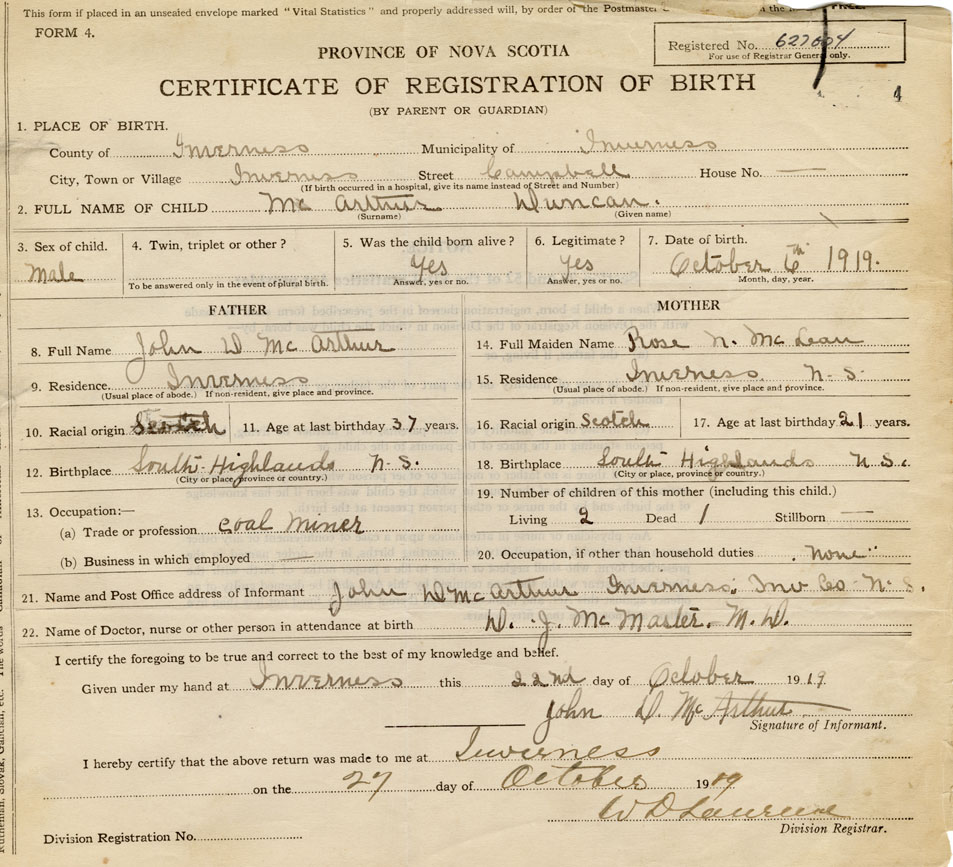 This form if placed in an unsealed envelope marked "Vital Statistics" and properly addressed will, by order of the Postmaster
FORM 4.
PROVINCE OF NOVA SCOTIA
Registered No.
For use of Registrar General only.
CERTIFICATE OF REGISTRATION OF BIRTH
4
(BY PARENT OR GUARDIAN)
1. PLACE OF BIRTH.
County of Inverness Municipality of Inverness
City, Town or Village Inverness Street Campbell House No. —
(If birth occurred in a hospital, give its name instead of Street and Number)
2. FULL NAME OF CHILD Mc Arthur Duncan.
(Surname) (Given name)
3. Sex of child. 4. Twin, triplet or other? 5. Was the child born alive? 6. Legitimate? 7. Date of birth.
Male Yes Yes October 6th 1919.
To be answered only in the event of plural birth. Answer, yes or no. Answer, yes or no. Month, day, year.
FATHER
8. Full Name John D McArthur
9. Residence Inverness
(Usual place of abode.) If non-resident, give place and province.
10. Racial origin Scotch 11. Age at last birthday 37 years.
12. Birthplace South Highlands N.S.
(City or place, province or country.)
13. Occupation:—
(a) Trade or profession Coal Miner
(b) Business in which employed
MOTHER
14. Full Maiden Name Rose N. McLean
15. Residence Inverness N-S-
(Usual place of abode.) If non-resident, give place and province.
16. Racial origin Scotch 17. Age at last birthday 21 years.
18. Birthplace South Highlands N.S.
(City or place, province or country.)
19. Number of children of this mother (including this child.)
Living 2 Dead 1 Stillborn —
20. Occupation, if other than household duties "None"
21. Name and Post Office address of Informant John D McArthur Inverness, Inv Co N-S.
22. Name of Doctor, nurse or other person in attendance at birth D. J. McMaster. M.D.
I certify the foregoing to be true and correct to the best of my knowledge and belief.
Given under my hand at Inverness this 22nd day of October 1919
John D. McArthur
Signature of Informant.
I hereby certify that the above return was made to me at Inverness
on the 27 day of October 1919
W D Lawrence
Division Registrar.
Division Registration No.